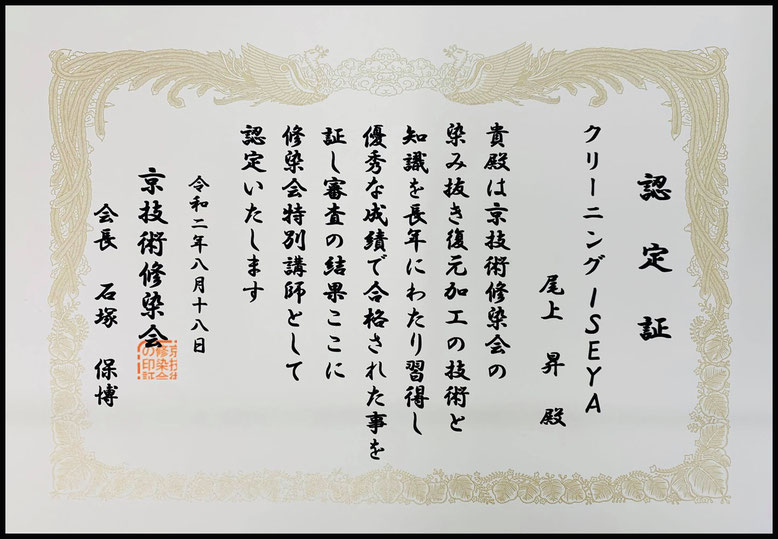 認定証
クリーニングISEYA
尾上 昇 殿
貴殿は京技術修染会の
染み抜き復元加工の技術と
知識を長年にわたり習得し
優秀な成績で合格された事を
証し審査の結果ここに
修染会特別講師として
認定いたします
令和二年八月十八日
京技術修染会
会長 石塚 保博
京技術
修染会
の印証